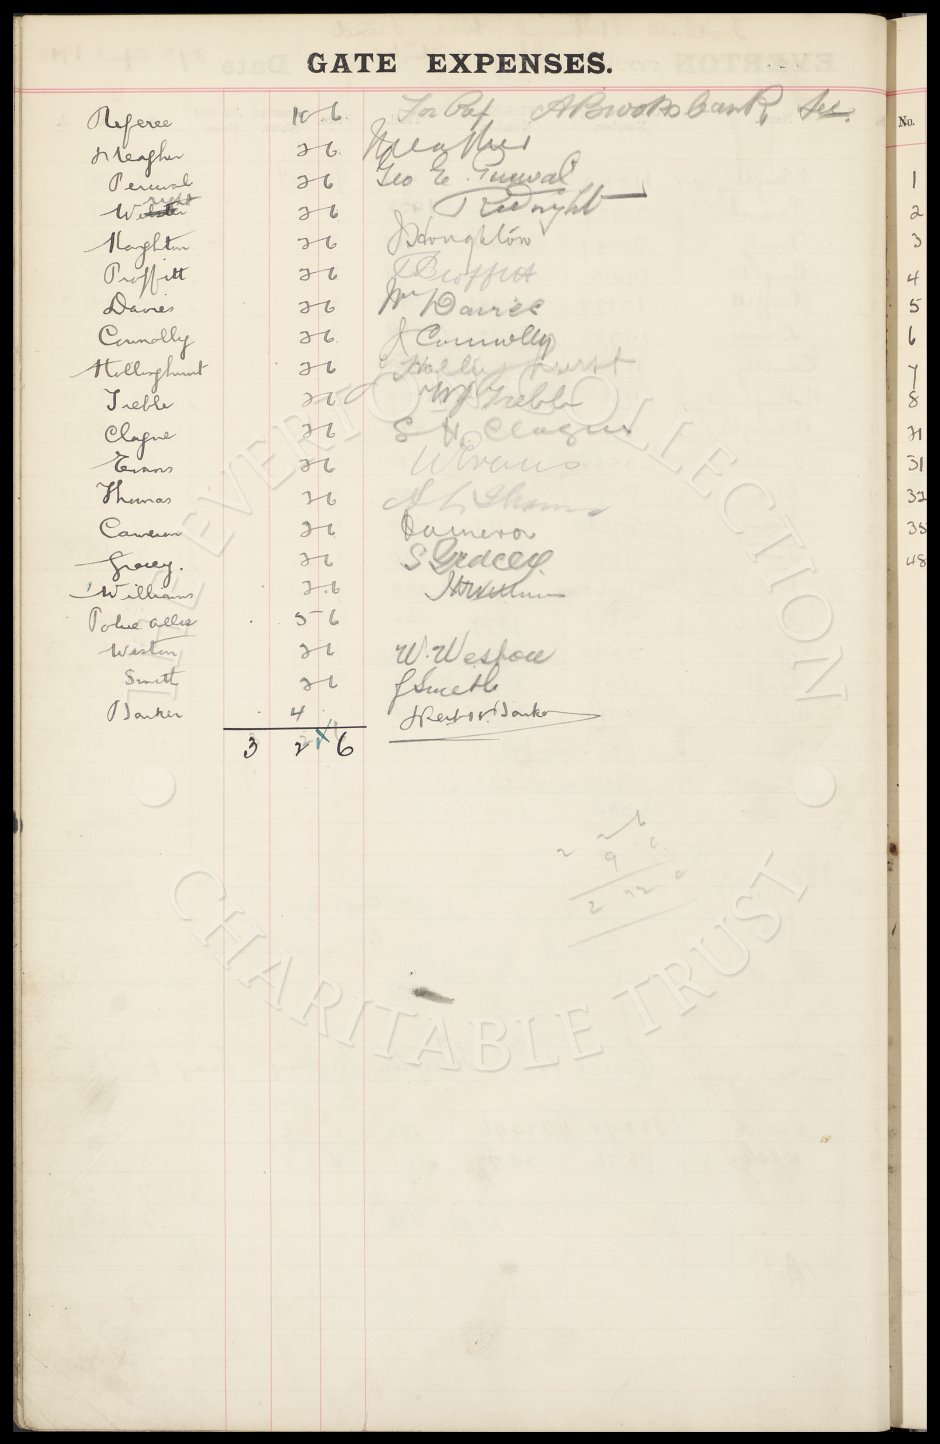 GATE EXPENSES.
No.
Referee 10 6 For Ref A Brooksbank, Sec.
Meagher 2 6 Meagher
Percival 2 6 Geo E. Percival
Wright 2 6 R Wright
Houghton 2 6 J Houghton
Proffitt 2 6 J Proffitt
Davies 2 6 Wm Davies
Connolly 2 6 J Connolly
Hollinghurst 2 6
Treble 2 6 W J Treble
Clague 2 6 S H. Clague
Evans 2 6 W Evans
Thomas 2 6 A L Thomas
Cameron 2 6 D Cameron
Gracey. 2 6 S Gracey
Williams 2 6 H Williams
Police 5 6
Weston 2 6 W. Weston
Smith 2 6 J Smith
Banker 4 Banker
3 2 6
1
2
3
4
5
6
7
8
21
31
32
38
48
THE EVERTON COLLECTION
CHARITABLE TRUST